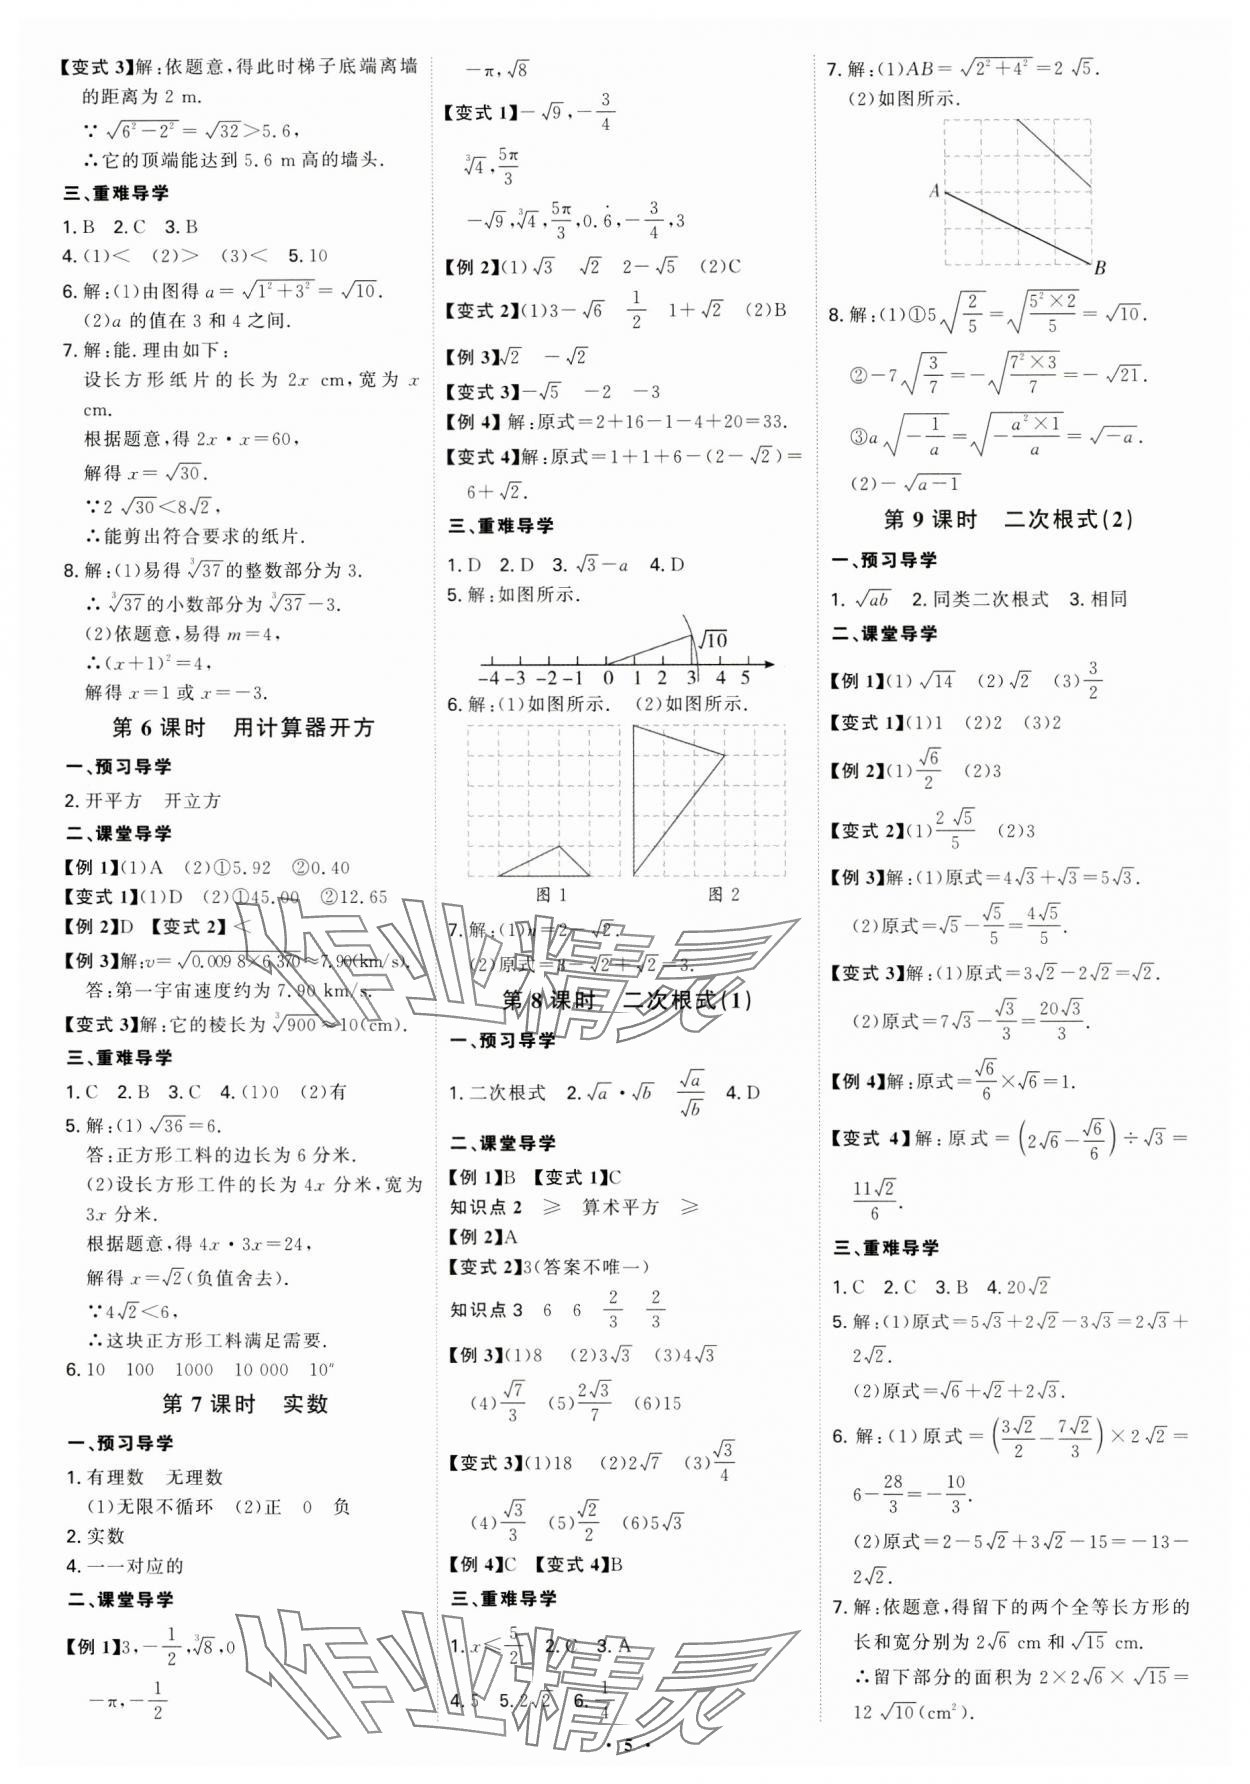 【变式 3】解:依题意,得此时梯子底端离墙
的距离为 2 m.
∵ √(6²－2²)＝√32＞5.6,
∴它的顶端能达到 5.6 m 高的墙头.
三、重难导学
1. B 2. C 3. B
4. (1)＜ (2)＞ (3)＜ 5. 10
6. 解:(1)由图得 a＝√(1²＋3²)＝√10.
(2)a 的值在 3 和 4 之间.
7. 解:能.理由如下:
设长方形纸片的长为 2x cm,宽为 x
cm.
根据题意,得 2x·x＝60,
解得 x＝√30.
∵2√30＜8√2,
∴能剪出符合要求的纸片.
8. 解:(1)易得 ³√37的整数部分为 3.
∴ ³√37的小数部分为 ³√37－3.
(2)依题意,易得 m＝4,
∴(x＋1)²＝4,
解得 x＝1 或 x＝－3.
第 6 课时 用计算器开方
一、预习导学
2. 开平方 开立方
二、课堂导学
【例 1】(1)A (2)①5.92 ②0.40
【变式 1】(1)D (2)①45.00 ②12.65
【例 2】D 【变式 2】＜
【例 3】解:v＝√(0.009 8×6 370)≈7.90(km/s).
答:第一宇宙速度约为 7.90 km/s.
【变式 3】解:它的棱长为 ³√900≈10(cm).
三、重难导学
1. C 2. B 3. C 4. (1)0 (2)有
5. 解:(1)√36＝6.
答:正方形工料的边长为 6 分米.
(2)设长方形工件的长为 4x 分米,宽为
3x 分米.
根据题意,得 4x·3x＝24,
解得 x＝√2(负值舍去).
∵4√2＜6,
∴这块正方形工料满足需要.
6. 10 100 1000 10 000 10ⁿ
第 7 课时 实数
一、预习导学
1. 有理数 无理数
(1)无限不循环 (2)正 0 负
2. 实数
4. 一一对应的
二、课堂导学
【例 1】3,－1/2,³√8,0
－π,－1/2
－π,√8
【变式 1】－√9,－3/4
³√4,5π/3
－√9,³√4,5π/3,0.6̇,－3/4,3
【例 2】(1)√3 √2 2－√5 (2)C
【变式 2】(1)3－√6 1/2 1＋√2 (2)B
【例 3】√2 －√2
【变式 3】－√5 －2 －3
【例 4】解:原式＝2＋16－1－4＋20＝33.
【变式 4】解:原式＝1＋1＋6－(2－√2)＝
6＋√2.
三、重难导学
1. D 2. D 3. √3－a 4. D
5. 解:如图所示.
√10
－4－3－2－1 0 1 2 3 4 5
6. 解:(1)如图所示. (2)如图所示.
图 1 图 2
7. 解:(1)n＝2－√2.
(2)原式＝3－√2＋√2＝3.
第 8 课时 二次根式(1)
一、预习导学
1. 二次根式 2. √a·√b √a/√b 4. D
二、课堂导学
【例 1】B 【变式 1】C
知识点 2 ≥ 算术平方 ≥
【例 2】A
【变式 2】3(答案不唯一)
知识点 3 6 6 2/3 2/3
【例 3】(1)8 (2)3√3 (3)4√3
(4)√7/3 (5)2√3/7 (6)15
【变式 3】(1)18 (2)2√7 (3)√3/4
(4)√3/3 (5)√2/2 (6)5√3
【例 4】C 【变式 4】B
三、重难导学
1. x≤5/2 2. C 3. A
4. 5 5. 2√2 6. 1/4
7. 解:(1)AB＝√(2²＋4²)＝2√5.
(2)如图所示.
A
B
8. 解:(1)①5√(2/5)＝√((5²×2)/5)＝√10.
②－7√(3/7)＝－√((7²×3)/7)＝－√21.
③a√(－1/a)＝√(－(a²×1)/a)＝√(－a).
(2)－√(a－1)
第 9 课时 二次根式(2)
一、预习导学
1. √ab 2. 同类二次根式 3. 相同
二、课堂导学
【例 1】(1)√14 (2)√2 (3)3/2
【变式 1】(1)1 (2)2 (3)2
【例 2】(1)√6/2 (2)3
【变式 2】(1)2√5/5 (2)3
【例 3】解:(1)原式＝4√3＋√3＝5√3.
(2)原式＝√5－√5/5＝4√5/5.
【变式 3】解:(1)原式＝3√2－2√2＝√2.
(2)原式＝7√3－√3/3＝20√3/3.
【例 4】解:原式＝√6/6×√6＝1.
【变式 4】解:原式＝(2√6－√6/6)÷√3＝
11√2/6.
三、重难导学
1. C 2. C 3. B 4. 20√2
5. 解:(1)原式＝5√3＋2√2－3√3＝2√3＋
2√2.
(2)原式＝√6＋√2＋2√3.
6. 解:(1)原式＝(3√2/2－7√2/3)×2√2＝
6－28/3＝－10/3.
(2)原式＝2－5√2＋3√2－15＝－13－
2√2.
7. 解:依题意,得留下的两个全等长方形的
长和宽分别为 2√6 cm 和√15 cm.
∴留下部分的面积为 2×2√6×√15＝
12√10(cm²).
· 5 ·
作业精灵
作业精灵